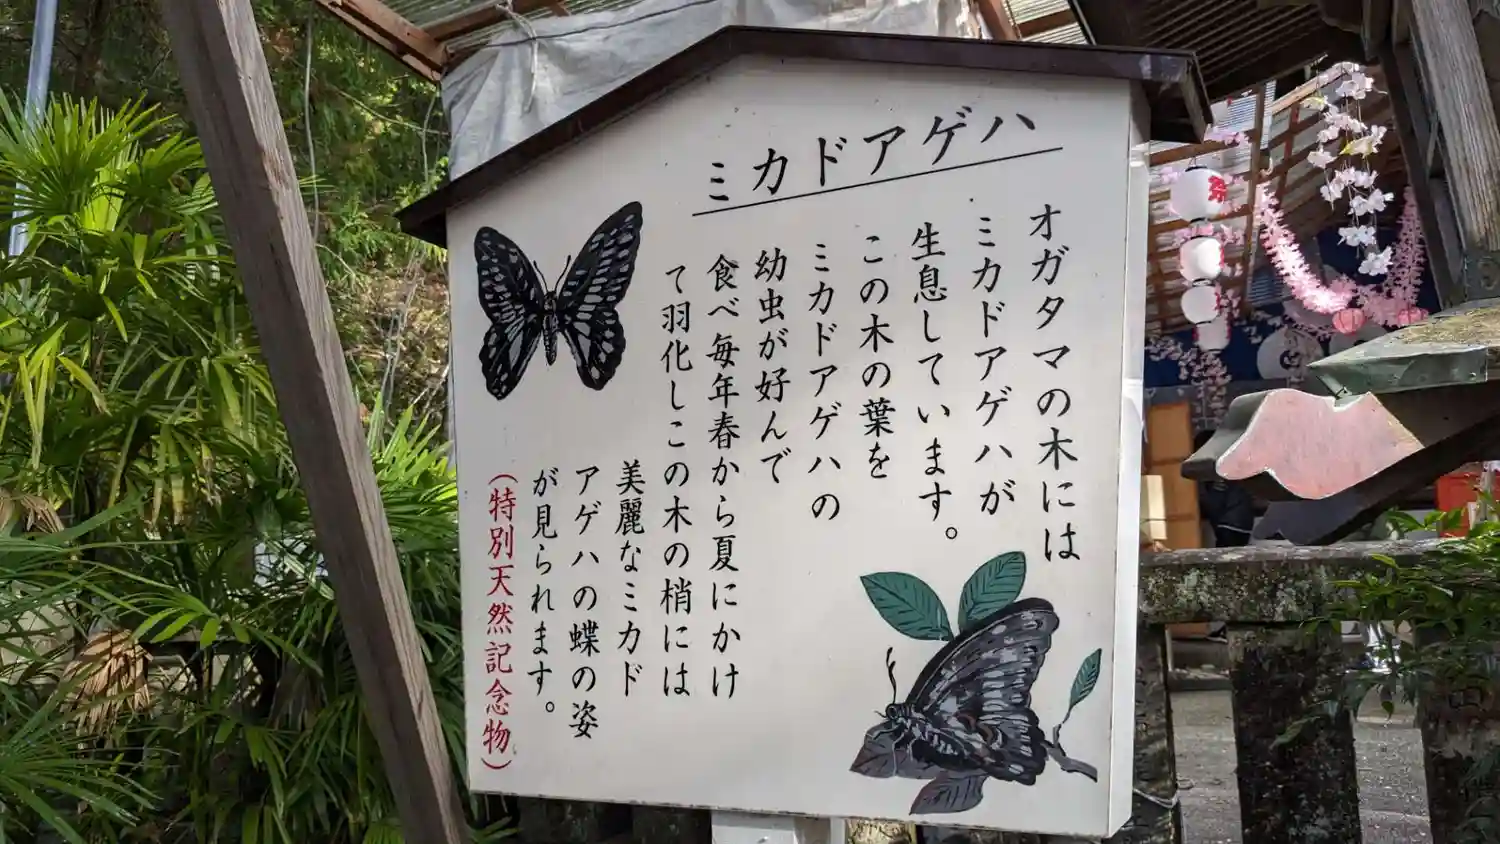 ミカドアゲハ
オガタマの木には
ミカドアゲハが
生息しています。
この木の葉を
ミカドアゲハの
幼虫が好んで
食べ毎年春から夏にかけ
て羽化しこの木の梢には
美麗なミカド
アゲハの蝶の姿
が見られます。
(特別天然記念物)
祭